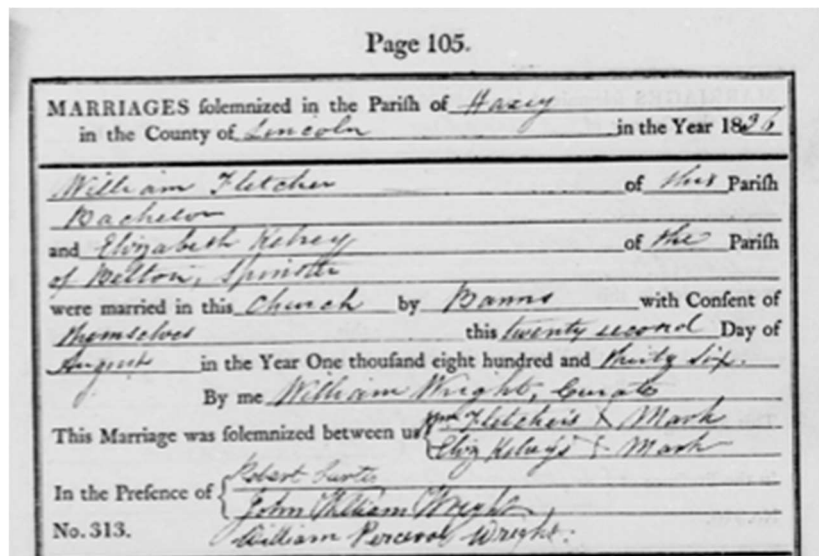 Page 105.
MARRIAGES solemnized in the Parish of Haxey
in the County of Lincoln in the Year 1836
William Fletcher of this Parish
Bachelor
and Elizabeth Kelsey of the Parish
of Belton, Spinster
were married in this Church by Banns with Consent of
themselves this twenty second Day of
August in the Year One thousand eight hundred and thirty six.
By me William Wright, Curate
This Marriage was solemnized between us Wm Fletcher's X Mark
Eliz Kelsey's X Mark
In the Presence of Robert
John William Wright
No. 313. William Perceval Wright.